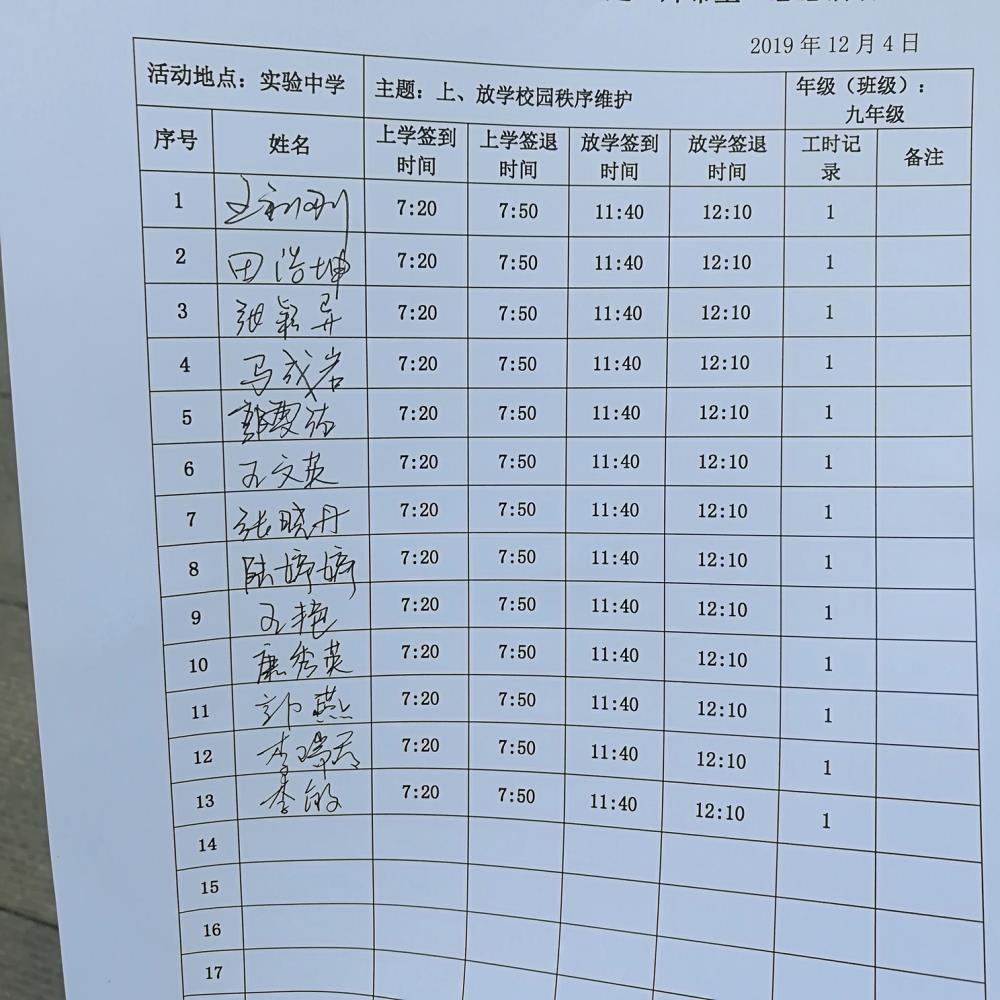 2019 年 12 月 4 日
活动地点：实验中学 主题：上、放学校园秩序维护 年级（班级）：九年级
序号 姓名 上学签到时间 上学签退时间 放学签到时间 放学签退时间 工时记录 备注
1 7:20 7:50 11:40 12:10 1
2 田浩坤 7:20 7:50 11:40 12:10 1
3 张颖异 7:20 7:50 11:40 12:10 1
4 马成岩 7:20 7:50 11:40 12:10 1
5 7:20 7:50 11:40 12:10 1
6 王文英 7:20 7:50 11:40 12:10 1
7 张晓丹 7:20 7:50 11:40 12:10 1
8 陆婷婷 7:20 7:50 11:40 12:10 1
9 王艳 7:20 7:50 11:40 12:10 1
10 康秀英 7:20 7:50 11:40 12:10 1
11 7:20 7:50 11:40 12:10 1
12 7:20 7:50 11:40 12:10 1
13 李敏 7:20 7:50 11:40 12:10 1
14
15
16
17